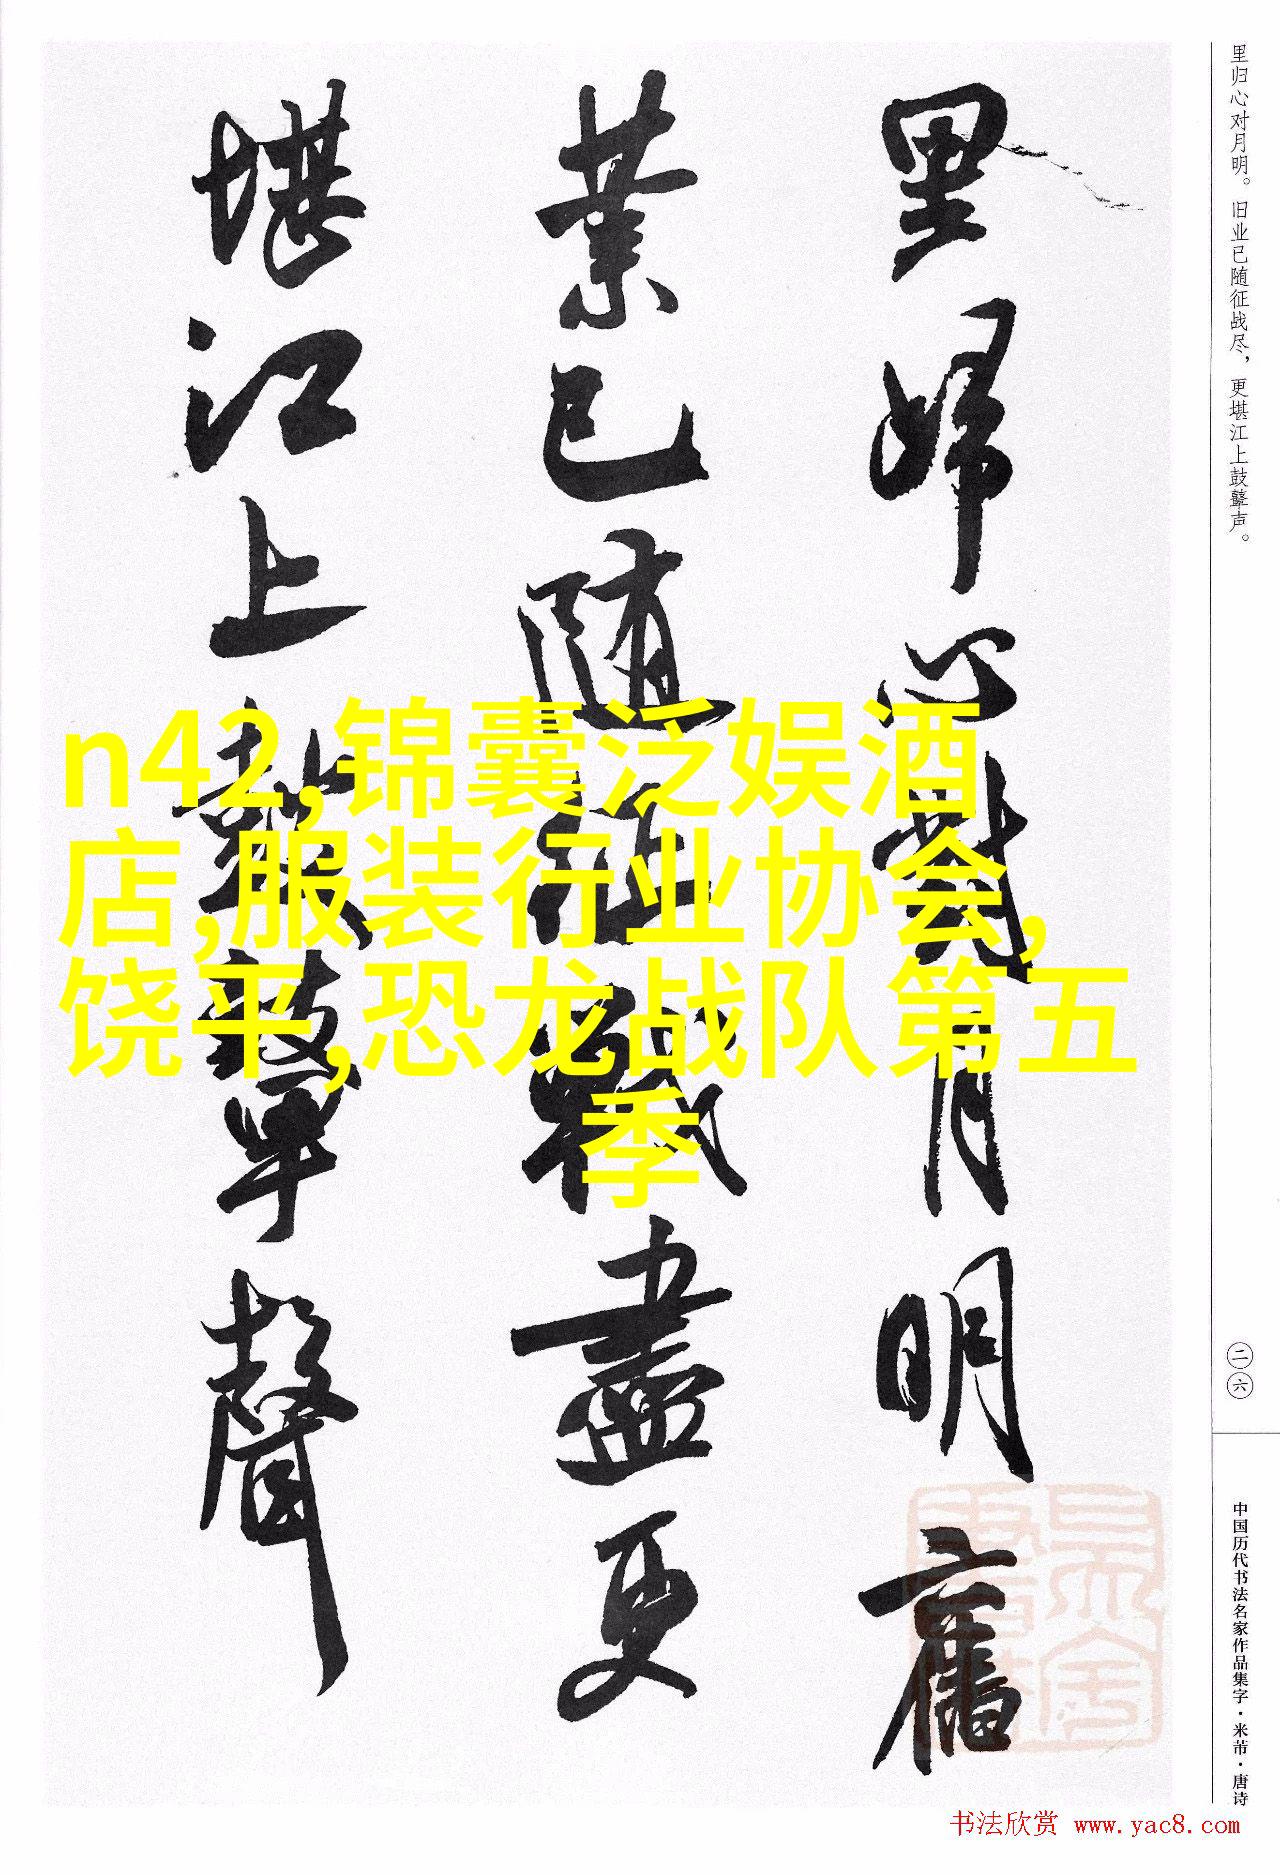 里归心对月明。旧业已随征战尽，更堪江上鼓鼙声。
里歸心對月明舊
業已隨征戰盡更
堪江上鼓鼙聲
n42,锦囊泛娱酒
店,服装行业协会,
饶平,恐龙战队第五
季
二六
中国历代书法名家作品集字·米芾·唐诗
书法欣赏 www.yac8.com